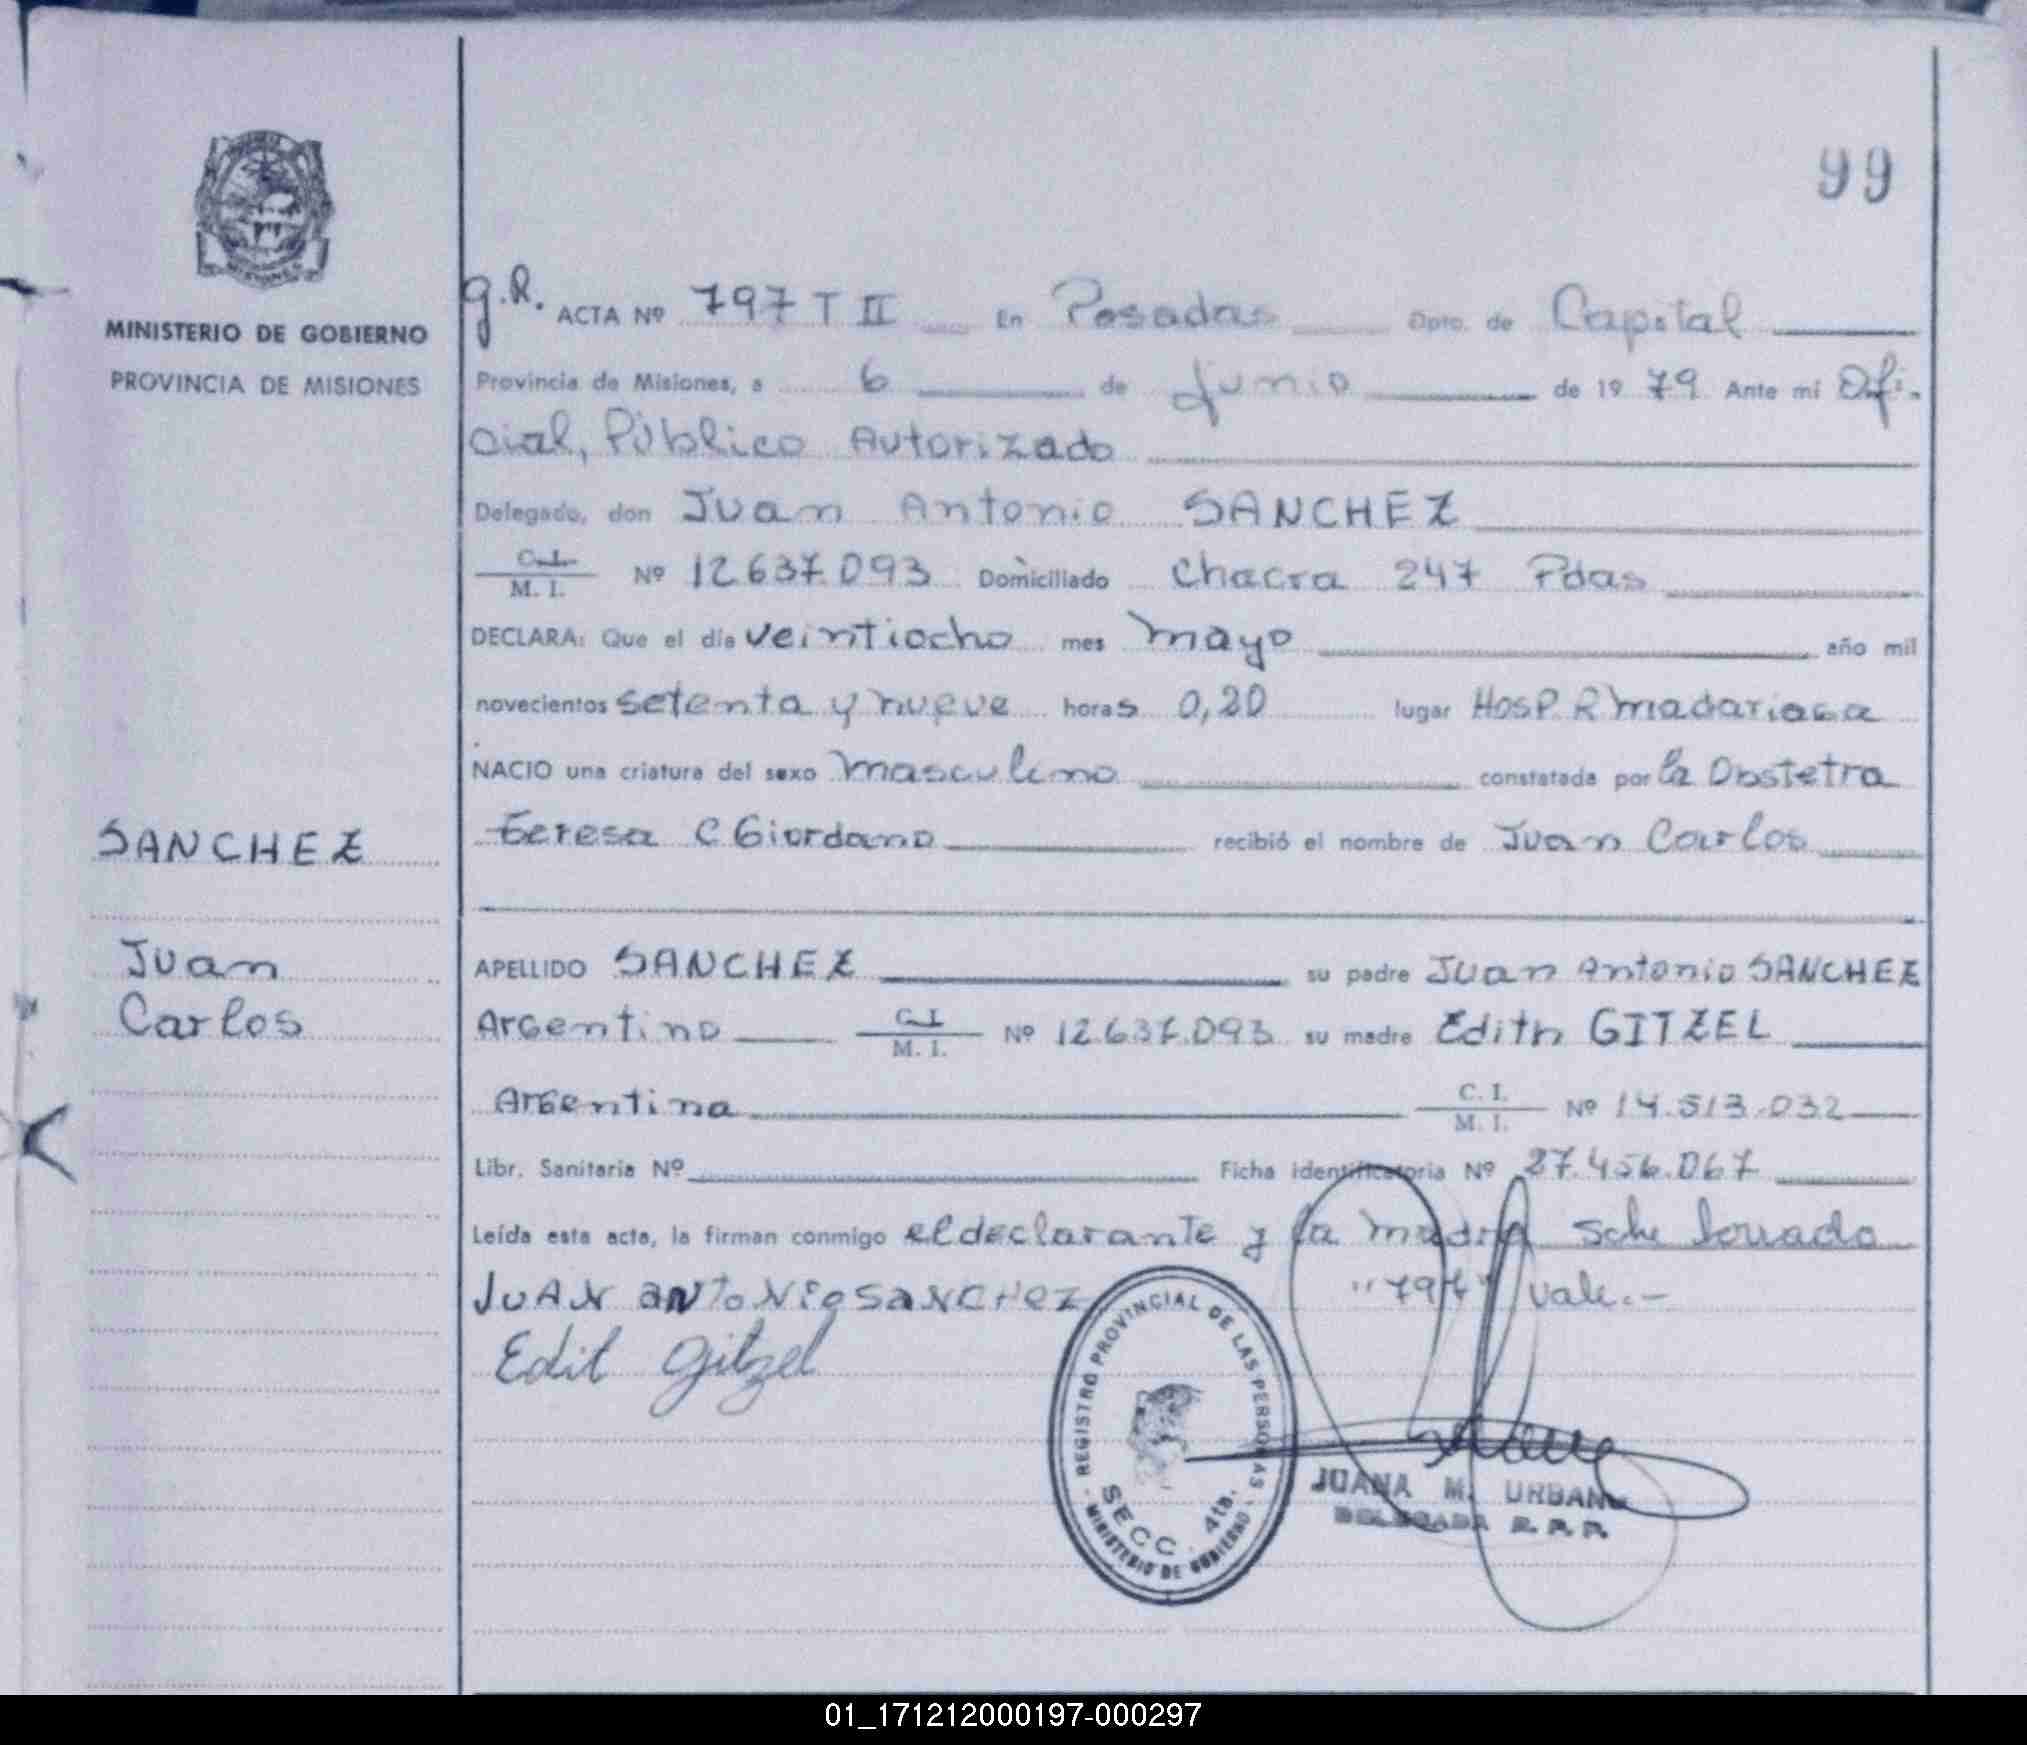 99
MINISTERIO DE GOBIERNO
PROVINCIA DE MISIONES
g.R. ACTA Nº 797 T II En Posadas Dpto. de Capital
Provincia de Misiones, a 6 de Junio de 1979 Ante mi Ofi-
cial, Público Autorizado
Delegado, don Juan Antonio SANCHEZ
C.I. M. I. Nº 12.637.093 Domiciliado Chacra 247 Pdas
DECLARA: Que el día veintiocho mes mayo año mil
novecientos setenta y nueve horas 0,20 lugar HosP. R madariaga
NACIO una criatura del sexo masculino constatada por la Obstetra
Teresa C Giordano recibió el nombre de Juan Carlos
SANCHEZ
Juan
Carlos
APELLIDO SANCHEZ su padre Juan Antonio SANCHEZ
Argentino C.I. M. I. Nº 12.637.093 su madre Edith GITZEL
Argentina C. I. M. I. Nº 14.513.032
Libr. Sanitaria Nº Ficha Identificatoria Nº 27.456.067
Leída esta acta, la firman conmigo el declarante y la madre
JUAN ANTONIO SANCHEZ "797" vale.-
Edit Gitzel
REGISTRO PROVINCIAL DE LAS PERSONAS
SECC. 4ta.
MINISTERIO DE GOBIERNO
JUANA M. URBAN
DELEGADA R. P. P.
01_171212000197-000297